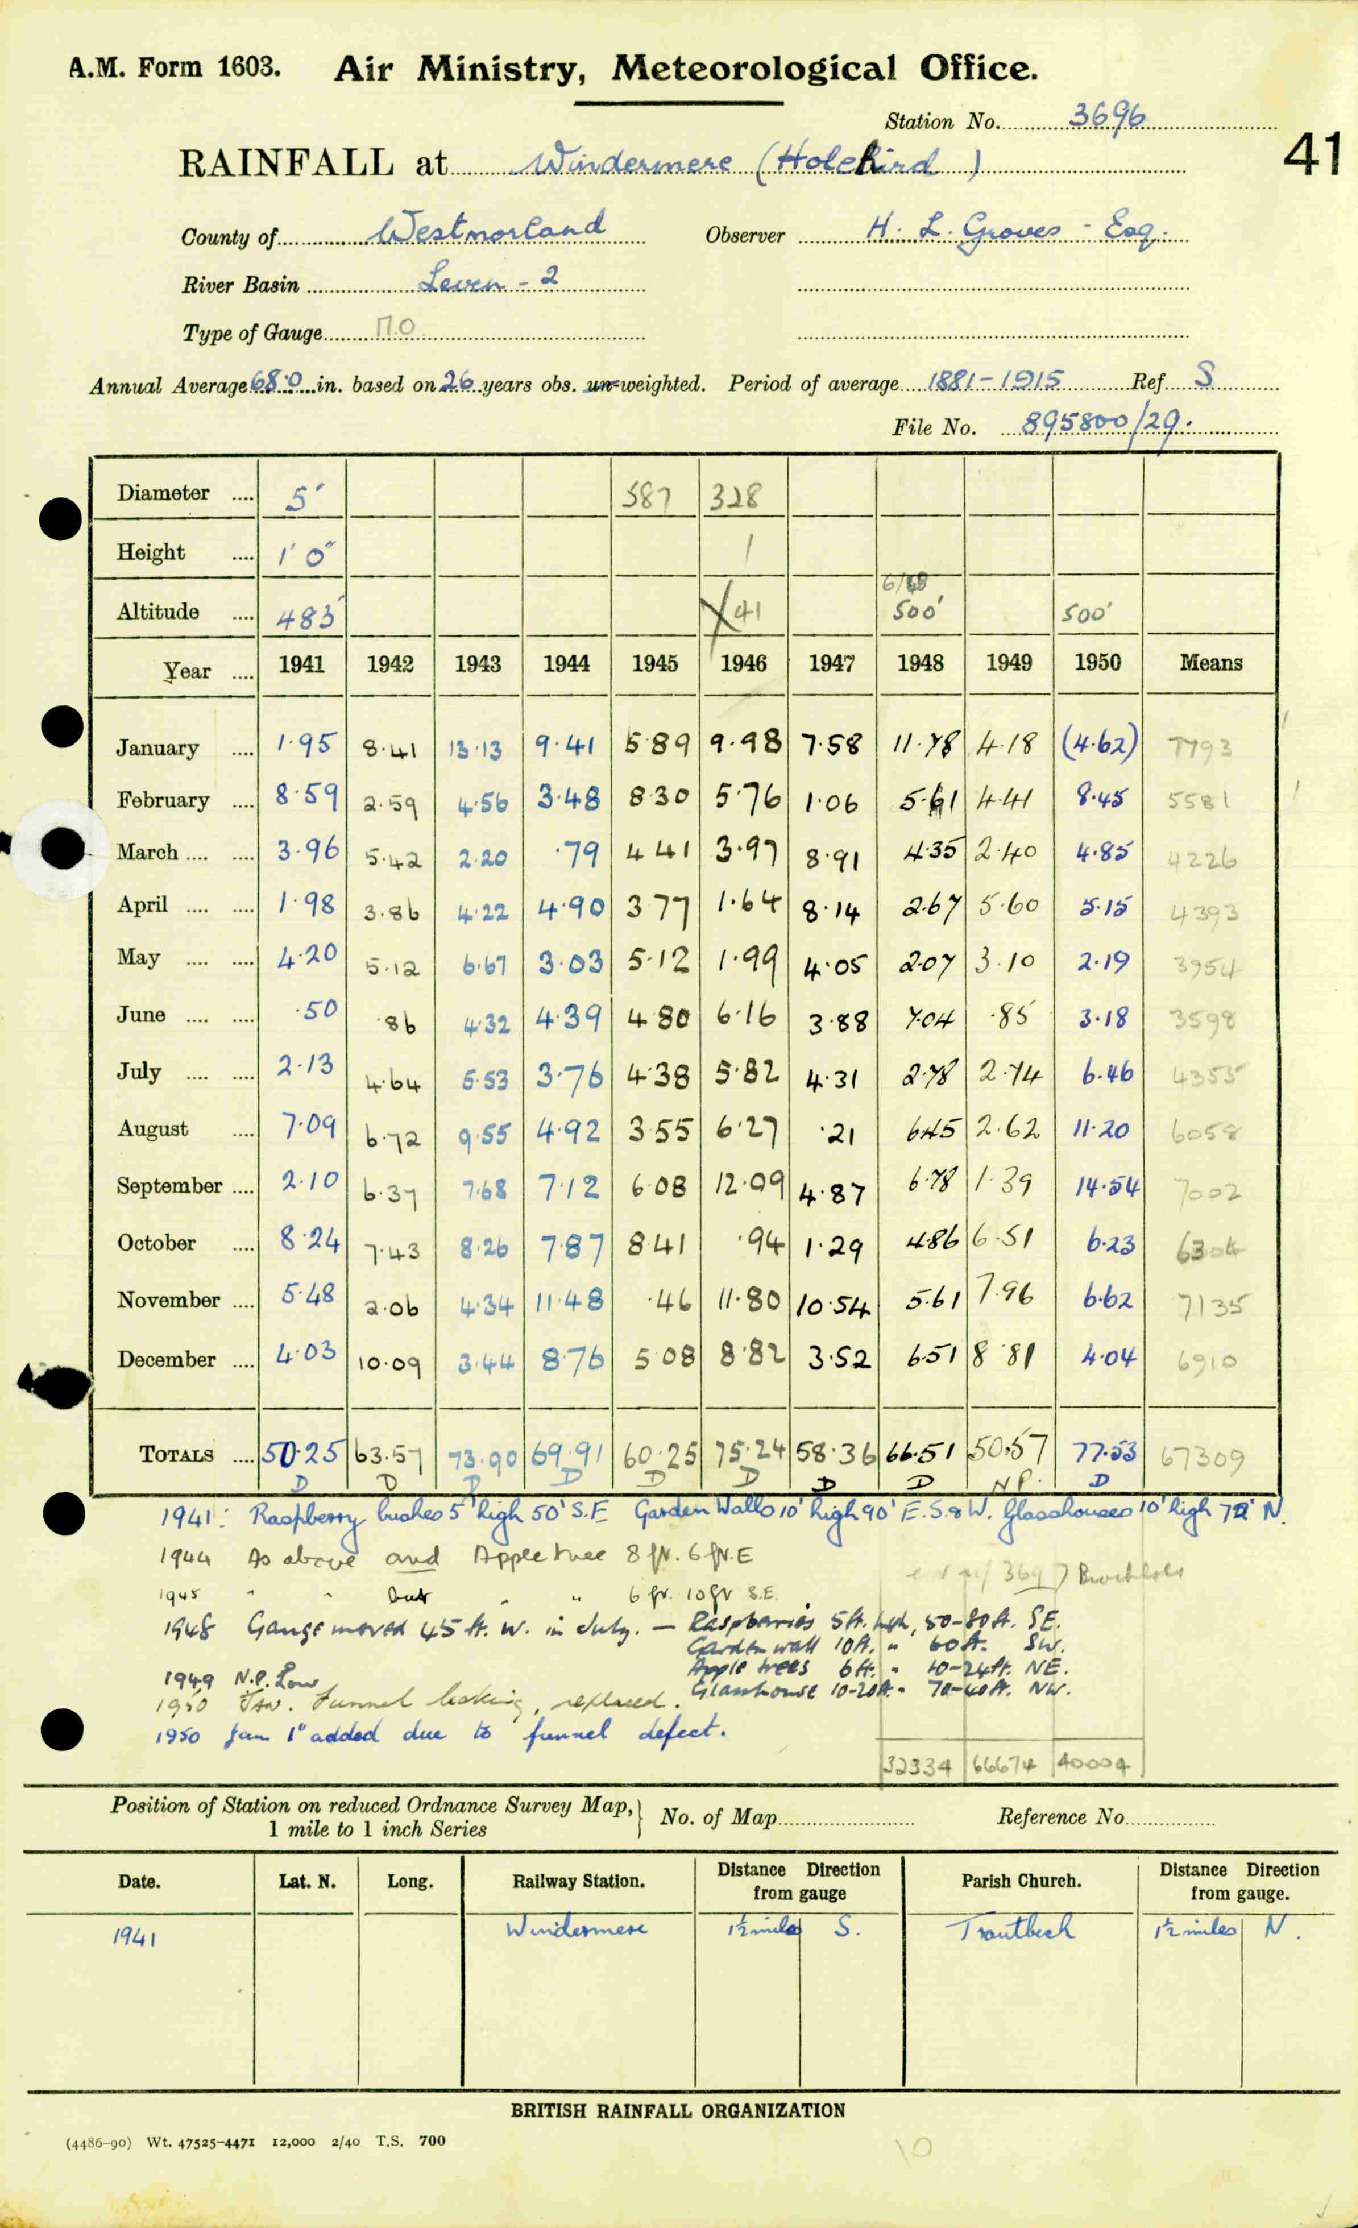 A.M. Form 1603. Air Ministry, Meteorological Office.
Station No. 3696
41
RAINFALL at Windermere (Holehird)
County of Westmorland Observer H. L. Groves - Esq.
River Basin Leven - 2
Type of Gauge M.O
Annual Average 68.0 in. based on 26 years obs. un-weighted. Period of average 1881-1915 Ref. S
File No. 895800/29.
Diameter .... 5" 587 328
Height .... 1' 0" 1
6/48
Altitude .... 483' 41 500' 500'
Year .... 1941 1942 1943 1944 1945 1946 1947 1948 1949 1950 Means
January .... 1.95 8.41 13.13 9.41 5.89 9.98 7.58 11.78 4.18 (4.62) 7793
February .... 8.59 2.59 4.56 3.48 8.30 5.76 1.06 5.61 4.41 8.45 5581
March .... .... 3.96 5.42 2.20 .79 4.41 3.97 8.91 4.35 2.40 4.85 4226
April .... .... 1.98 3.86 4.22 4.90 3.77 1.64 8.14 2.67 5.60 5.15 4393
May .... .... 4.20 5.12 6.67 3.03 5.12 1.99 4.05 2.07 3.10 2.19 3954
June .... .... .50 .86 4.32 4.39 4.80 6.16 3.88 7.04 .85 3.18 3598
July .... .... 2.13 4.64 5.53 3.76 4.38 5.82 4.31 2.78 2.74 6.46 4355
August .... 7.09 6.72 9.55 4.92 3.55 6.27 .21 6.45 2.62 11.20 6058
September .... 2.10 6.37 7.68 7.12 6.08 12.09 4.87 6.78 1.39 14.54 7002
October .... 8.24 7.43 8.26 7.87 8.41 .94 1.29 4.86 6.51 6.23 6304
November .... 5.48 2.06 4.34 11.48 .46 11.80 10.54 5.61 7.96 6.62 7135
December .... 4.03 10.09 3.44 8.76 5.08 8.82 3.52 6.51 8.81 4.04 6910
TOTALS .... 50.25 63.57 73.90 69.91 60.25 75.24 58.36 66.51 50.57 77.53 67309
D D D D D D D D N.P. D
1941: Raspberry bushes 5' high 50' S.E Garden Walls 10' high 90' E.S.&W. Glasshouses 10' high 72' N.
1944 As above and Apple tree 8 ft. 6 ft. E
3697
1945 " " but " " 6 ft. 10 ft S.E.
1948 Gauge moved 45 ft. W. in July. — Raspberries 5 ft. high, 50-80 ft. SE.
Garden wall 10 ft. " 60 ft. SW.
Apple trees 6 ft. " 10-24 ft. NE.
1949 N.P. Low
Glasshouse 10-20 ft. " 70-40 ft. NW.
1950 Jan. funnel leaking, replaced.
1950 Jan 1" added due to funnel defect.
32334 66674 40004
Position of Station on reduced Ordnance Survey Map, } No. of Map Reference No
1 mile to 1 inch Series
Date. Lat. N. Long. Railway Station. Distance Direction from gauge Parish Church. Distance Direction from gauge.
1941 Windermere 1½ miles S. Troutbeck 1½ miles N.
BRITISH RAINFALL ORGANIZATION
(4486-90) Wt. 47525-4471 12,000 2/40 T.S. 700
10